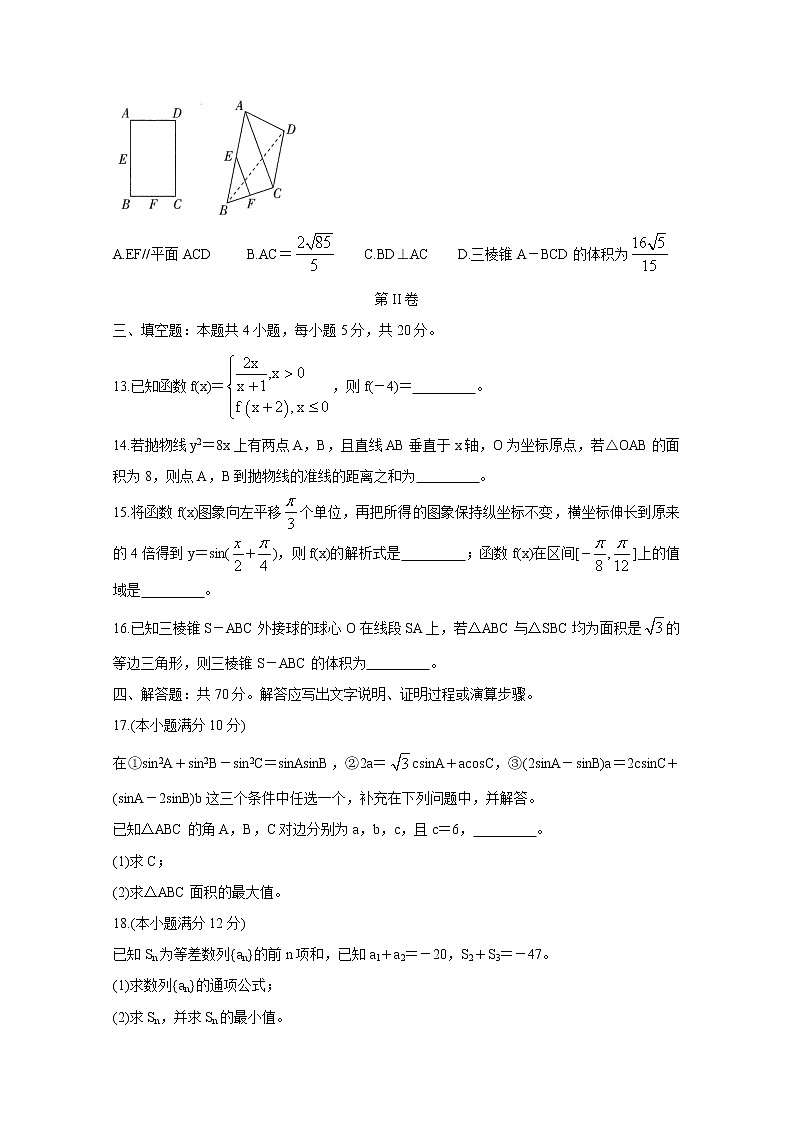 A D A D
E E
B F C B F C
A.EF//平面ACD B.AC=\frac{2\sqrt{85}}{5} C.BD⊥AC D.三棱锥A-BCD的体积为\frac{16\sqrt{5}}{15}
第II卷
三、填空题:本题共4小题,每小题5分,共20分。
13.已知函数f(x)=\begin{cases}\frac{2x}{x+1},x>0\\f(x+2),x≤0\end{cases},则f(-4)=_________。
14.若抛物线y²=8x上有两点A,B,且直线AB垂直于x轴,O为坐标原点,若△OAB的面
积为8,则点A,B到抛物线的准线的距离之和为_________。
15.将函数f(x)图象向左平移\frac{π}{3}个单位,再把所得的图象保持纵坐标不变,横坐标伸长到原来
的4倍得到y=sin(\frac{x}{2}+\frac{π}{4}),则f(x)的解析式是_________;函数f(x)在区间[-\frac{π}{8},\frac{π}{12}]上的值
域是_________。
16.已知三棱锥S-ABC外接球的球心O在线段SA上,若△ABC与△SBC均为面积是\sqrt{3}的
等边三角形,则三棱锥S-ABC的体积为_________。
四、解答题:共70分。解答应写出文字说明、证明过程或演算步骤。
17.(本小题满分10分)
在①sin²A+sin²B-sin²C=sinAsinB,②2a=\sqrt{3}csinA+acosC,③(2sinA-sinB)a=2csinC+
(sinA-2sinB)b这三个条件中任选一个,补充在下列问题中,并解答。
已知△ABC的角A,B,C对边分别为a,b,c,且c=6,_________。
(1)求C;
(2)求△ABC面积的最大值。
18.(本小题满分12分)
已知Sₙ为等差数列{aₙ}的前n项和,已知a₁+a₂=-20,S₂+S₃=-47。
(1)求数列{aₙ}的通项公式;
(2)求Sₙ,并求Sₙ的最小值。